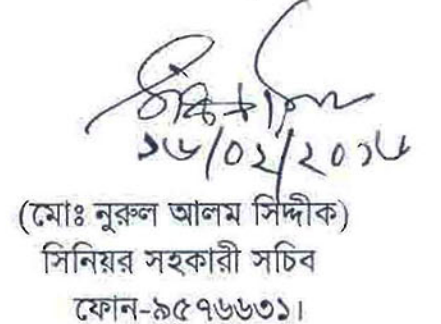 ১৬/০২/২০১৬
(মোঃ নুরুল আলম সিদ্দীক)
সিনিয়র সহকারী সচিব
ফোন-৯৫৭৬৬৩১।